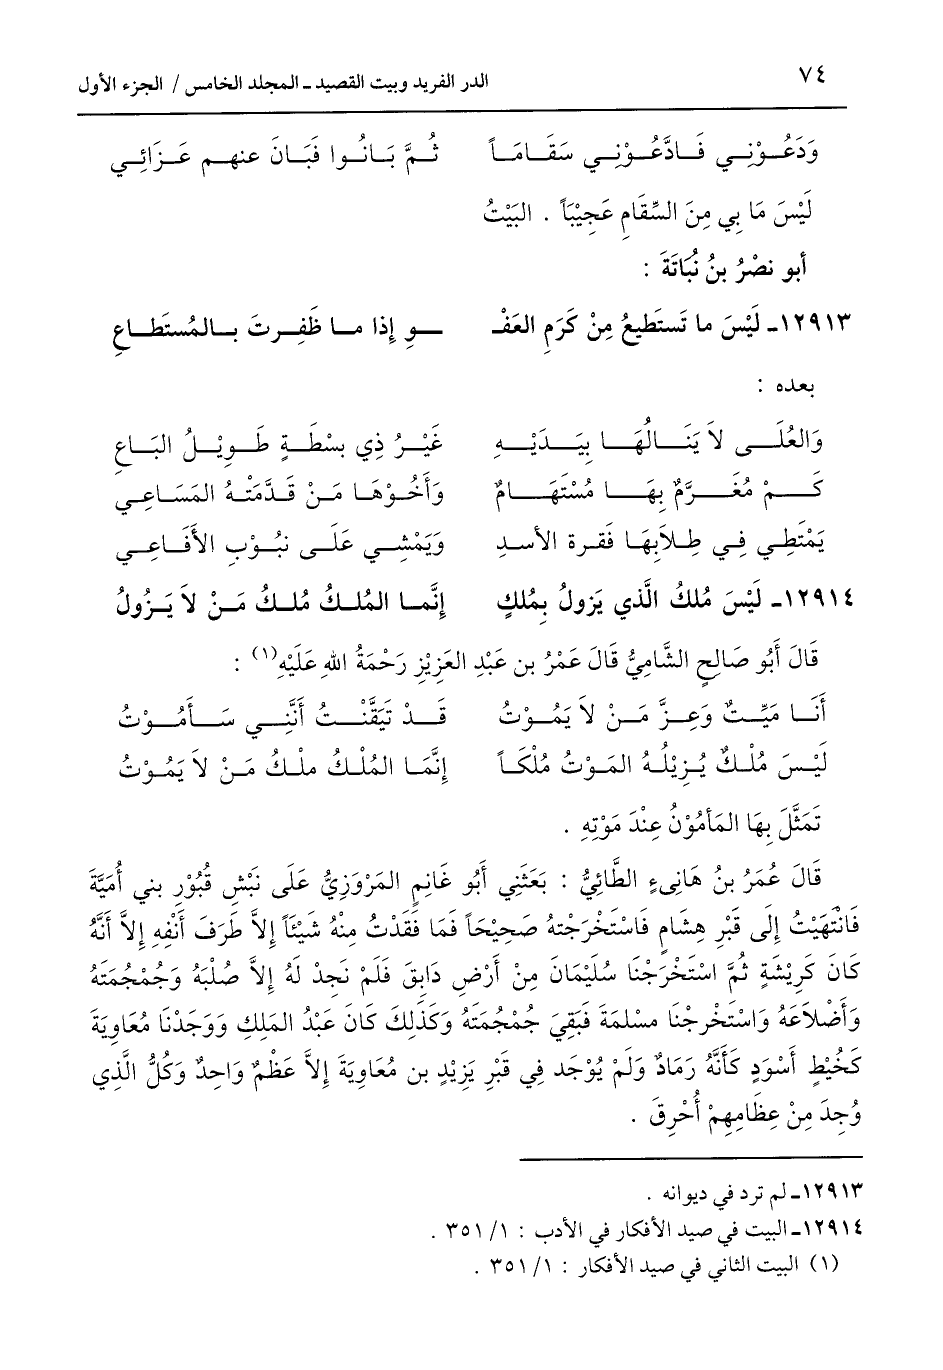 ٧٤ الدر الفريد وبيت القصيد ـ المجلد الخامس / الجزء الأول
وَدَعُوْنِي فَادَّعُوْنِي سَقَامَاً ثُمَّ بَانُوا فَبَانَ عنهم عَزَائِي
لَيْسَ مَا بِي مِنَ السِّقَامِ عَجِيْبَاً . البَيْتُ
أبو نصْرُ بنُ نُبَاتَةَ :
١٢٩١٣ـ لَيْسَ ما تَستَطيعُ مِنْ كَرَمِ العَفْـ ـو إِذا ما ظَفِرتَ بالمُستَطاعِ
بعده :
وَالعُلَى لاَ يَنَالُهَا بِيَدَيْهِ غَيْرُ ذِي بسْطَةٍ طَوِيْلُ البَاعِ
كَمْ مُغَرَّمٌ بِهَا مُسْتَهَامٌ وَأَخُوْهَا مَنْ قَدَّمَتْهُ المَسَاعِي
يَمْتَطِي فِي طِلاَبِهَا فَقرة الأسدِ وَيَمْشِي عَلَى نبُوْبِ الأَفَاعِي
١٢٩١٤ـ لَيْسَ مُلكُ الَّذي يَزولُ بِمُلكٍ إِنَّما المُلكُ مُلكُ مَنْ لاَ يَزُولُ
قَالَ أَبُو صَالِحٍ الشَّامِيُّ قَالَ عَمْرُ بن عَبْدِ العَزِيْزِ رَحْمَةُ اللهِ عَلَيْهِ(١) :
أَنَا مَيِّتٌ وَعِزَّ مَنْ لاَ يَمُوْتُ قَدْ تَيَقَّنْتُ أَنَّنِي سَأَمُوْتُ
لَيْسَ مُلْكٌ يُزِيْلُهُ المَوْتُ مُلْكَاً إِنَّمَا المُلْكُ ملْكُ مَنْ لاَ يَمُوْتُ
تَمَثَّلَ بِهَا المَأمُوْنُ عِنْدَ مَوْتِهِ .
قَالَ عُمَرُ بنُ هَانِىءٍ الطَّائِيُّ : بَعَثَنِي أَبُو غَانِمٍ المَرْوَزِيُّ عَلَى نَبْشِ قُبُوْرِ بني أُمَيَّةَ
فَانْتَهَيْتُ إِلَى قَبْرِ هِشَامٍ فَاسْتَخْرَجْتهُ صَحِيْحَاً فَمَا فَقَدْتُ مِنْهُ شَيْئَاً إِلاَّ طَرَفَ أَنْفِهِ إِلاَّ أَنَّهُ
كَانَ كَرِيْشَةٍ ثُمَّ اسْتَخْرَجْنَا سُلَيْمَانَ مِنْ أَرْضِ دَابِقَ فَلَمْ نَجِدْ لَهُ إِلاَّ صُلْبَهُ وَجُمْجُمَتَهُ
وَأَضْلاَعَهُ وَاسْتَخْرجْنَا مسْلمةَ فَبَقِيَ جُمْجُمَتَهُ وَكَذَلِكَ كَانَ عَبْدُ المَلِكِ وَوَجَدْنَا مُعَاوِيَةَ
كَخُيْطٍ أَسْوَدٍ كَأَنَّهُ رَمَادٌ وَلَمْ يُوْجَد فِي قَبْرِ يَزِيْدٍ بن مُعَاوِيَةَ إِلاَّ عَظْمٌ وَاحِدٌ وَكُلُّ الَّذِي
وُجِدَ مِنْ عِظَامِهِمْ أُحْرِقَ .
١٢٩١٣ـ لم ترد في ديوانه .
١٢٩١٤ـ البيت في صيد الأفكار في الأدب : ١ / ٣٥١ .
(١) البيت الثاني في صيد الأفكار : ١ / ٣٥١ .